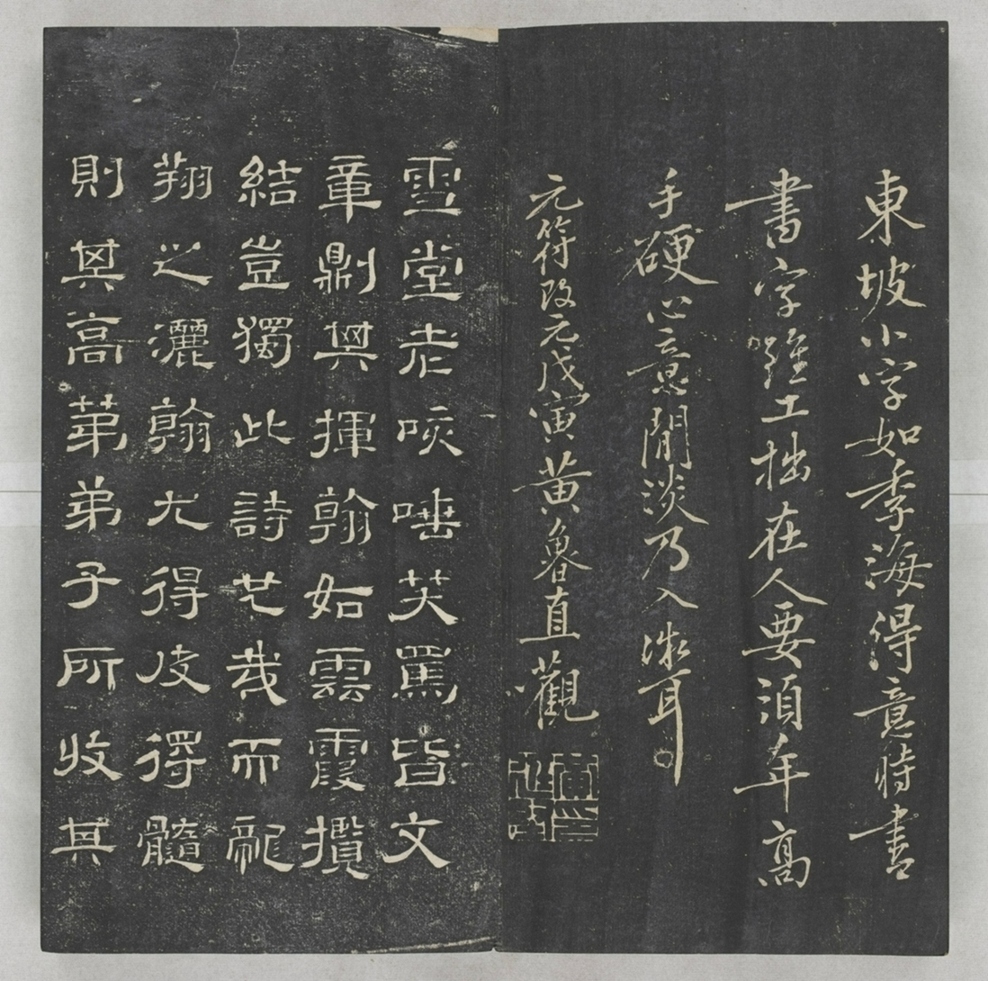 東坡小字如季海得意時書
書字雖工拙在人要須年高
手硬心意閒淡乃入微耳
元符改元戊寅黃魯直觀
雪堂老咳唾笑罵皆文
章則其揮翰如雲霞攬
結豈獨此詩也哉而
翔之灑翰尤得皮得髓
則其高第弟子所收其